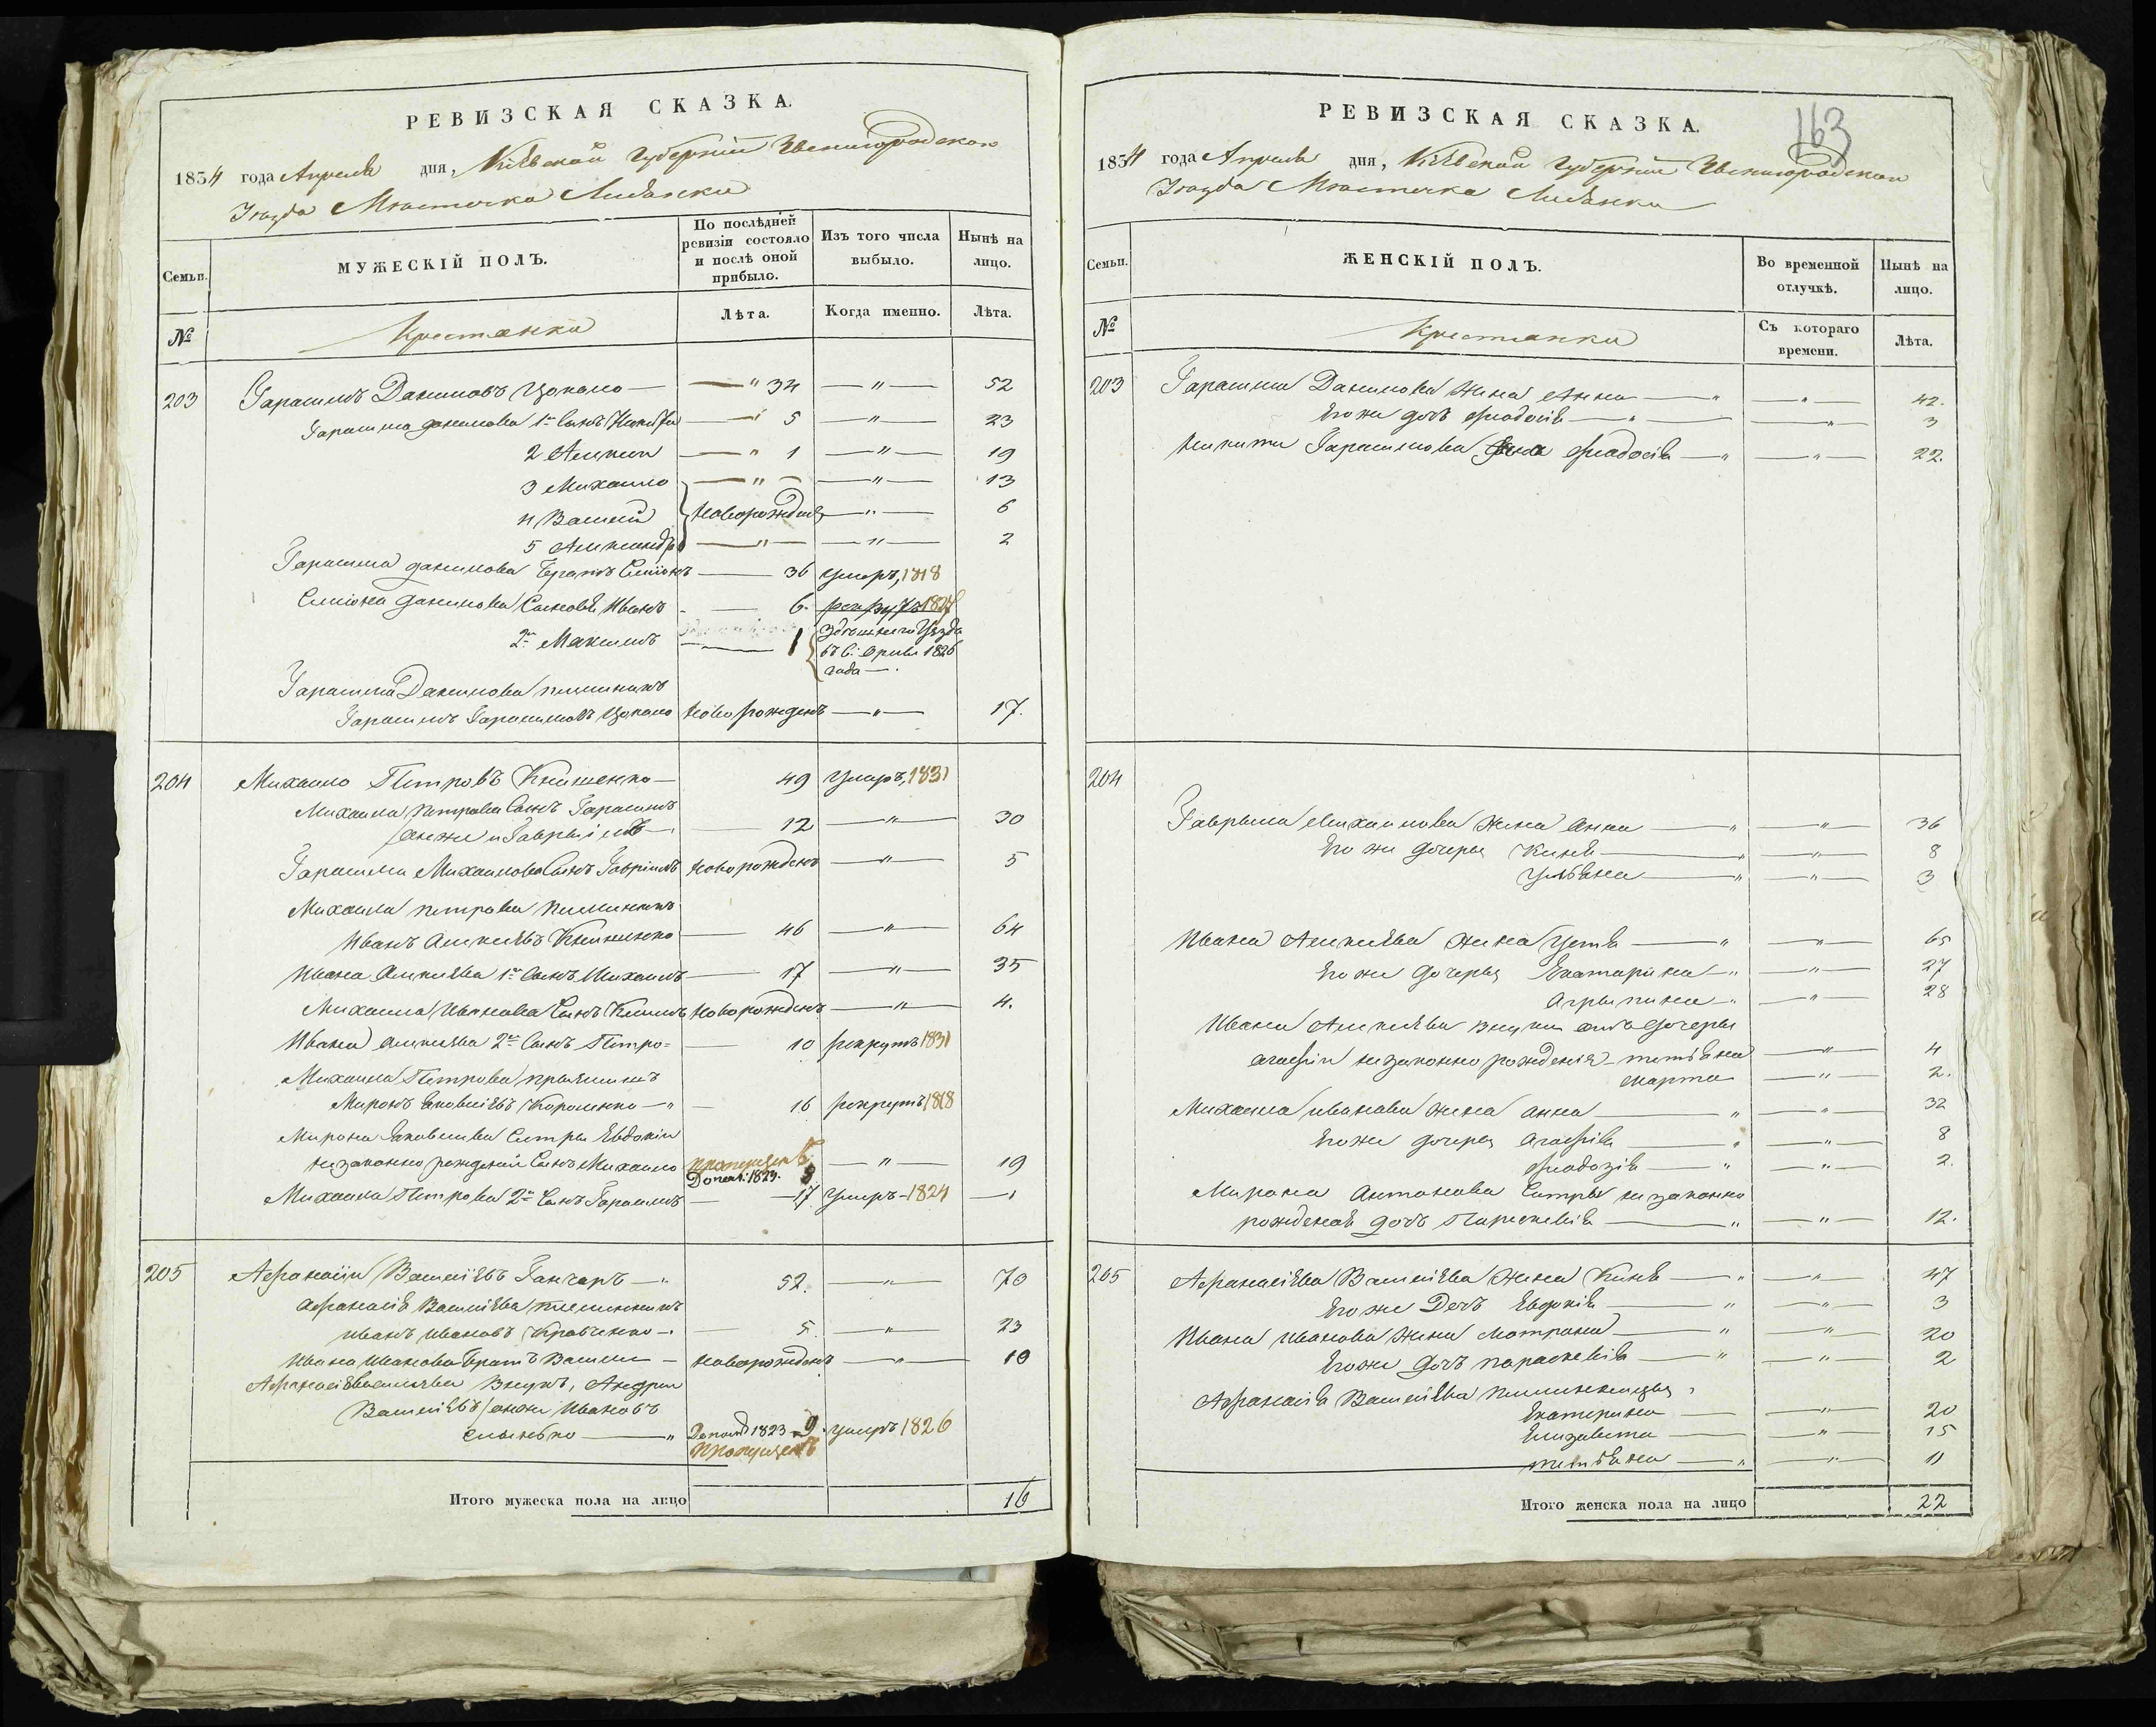 РЕВИЗСКАЯ СКАЗКА.
1834 года Апреля дня, Кіевской Губерніи Звенигородскаго
Уезда Местечка Лисянки
Семьи.
МУЖЕСКІЙ ПОЛЪ.
По послѣдней ревизіи состояло и послѣ оной прибыло.
Изъ того числа выбыло.
Нынѣ на лицо.
№
Крестьяне
Лѣта.
Когда именно.
Лѣта.
203 Гарасимъ Даниловъ — " 34 — " — 52
Гарасима Данилова 1й Сынъ Никита — " 5 — " — 23
2 Алексей — " 1 — " — 19
3 Михаило — " — — " — 13
4 Василий новорожденъ — " — 6
5 Александръ — " — — " — 2
Гарасима Данилова Братъ Симіонъ — 36 умеръ, 1818
Симіона Данилова Сыновья Иванъ — 6. рекрутъ 1827
2й Максимъ — 1
1826
года —
Гарасима Данилова племянникъ
Гарасимъ Гарасимовъ новорожденъ — " — 17.
204 Михаило Петровъ Книшенко — 49 умеръ, 1831
Михаила Петрова Сынъ Гарасимъ
онъ же и Гаврыілъ — 12 — " — 30
Гарасима Михаилова Сынъ Гавріилъ новорожденъ — " — 5
Михаила Петрова племянникъ
Иванъ Алексѣевъ Книшенко — 46 — " — 64
Ивана Алексѣева 1й Сынъ Михаилъ — 17 — " — 35
Михаила Иванова Сынъ новорожденъ — " — 4.
Ивана Алексѣева 2й Сынъ Петро — 10 рекрутъ 1831
Михаила Петрова
Миронъ Яковліевъ — " — 16 рекрутъ 1818
Мирона Яковлева Сестры Евдокіи
незаконно рожденый Сынъ Михаило пропущенъ — " — 19
Допол: 1823.
Михаила Петрова 2й Сынъ Гарасимъ — 17 умеръ — 1824 —
205 Афанасій Василіевъ Ганчаръ — " 52. — " — 70
Афанасія Василіева племянникъ
Иванъ Ивановъ Кравченко — 5. — " — 23
Ивана Иванова Братъ Василий — новорожденъ — " — 10
Афанасія Василіева Внукъ, Андрей
Василіевъ онже Ивановъ
— " Допол 1823 — 9. умеръ 1826
пропущенъ
Итого мужеска пола на лицо 16
163
РЕВИЗСКАЯ СКАЗКА.
1834 года Апреля дня, Кіевской Губерніи Звенигородскаго
Уезда Местечка Лисянки
Семьи.
ЖЕНСКІЙ ПОЛЪ.
Во временной отлучкѣ.
Нынѣ на лицо.
№
Крестьянки
Съ котораго времени.
Лѣта.
203 Гарасима Данилова Жена Анна — " — " — 42.
Его же дочь Феодосія — " — " — 3
Никиты Гарасимова Жена Феодосія — " — " — 22.
204
Гаврыила Михаилова Жена Анна — " — " — 36
Его же дочеры — " — " — 8
Ульяна — " — " — 3
Ивана Алексѣева Жена Устя — " — " — 65
Его же дочеры Екатарина — " — " — 27
Агрыпина — " — " — 28
Ивана Алексѣева внуки отъ дочеры
Агафіи незаконно рожденія Тетяна — " — 4
Марта — " — 2.
Михаила Иванова Жена Анна — " — " — 32
Его же дочеры Агафія — " — " — 8
Феодозія — " — " — 2.
Мирона Антонова Сестры незаконно
рожденая дочь Параскевія — " — " — 12.
205 Афанасіева Василіева Жена — " — " — 47
Его же Дочь Евдокія — " — " — 3
Ивана Иванова Жена Мотрона — " — " — 20
Его же дочь Параскевія — " — " — 2
Афанасія Василіева племянницы
Екатерина — " — 20
Елизавета — " — 15
Тетіяна — " — " — 11
Итого женска пола на лицо 22